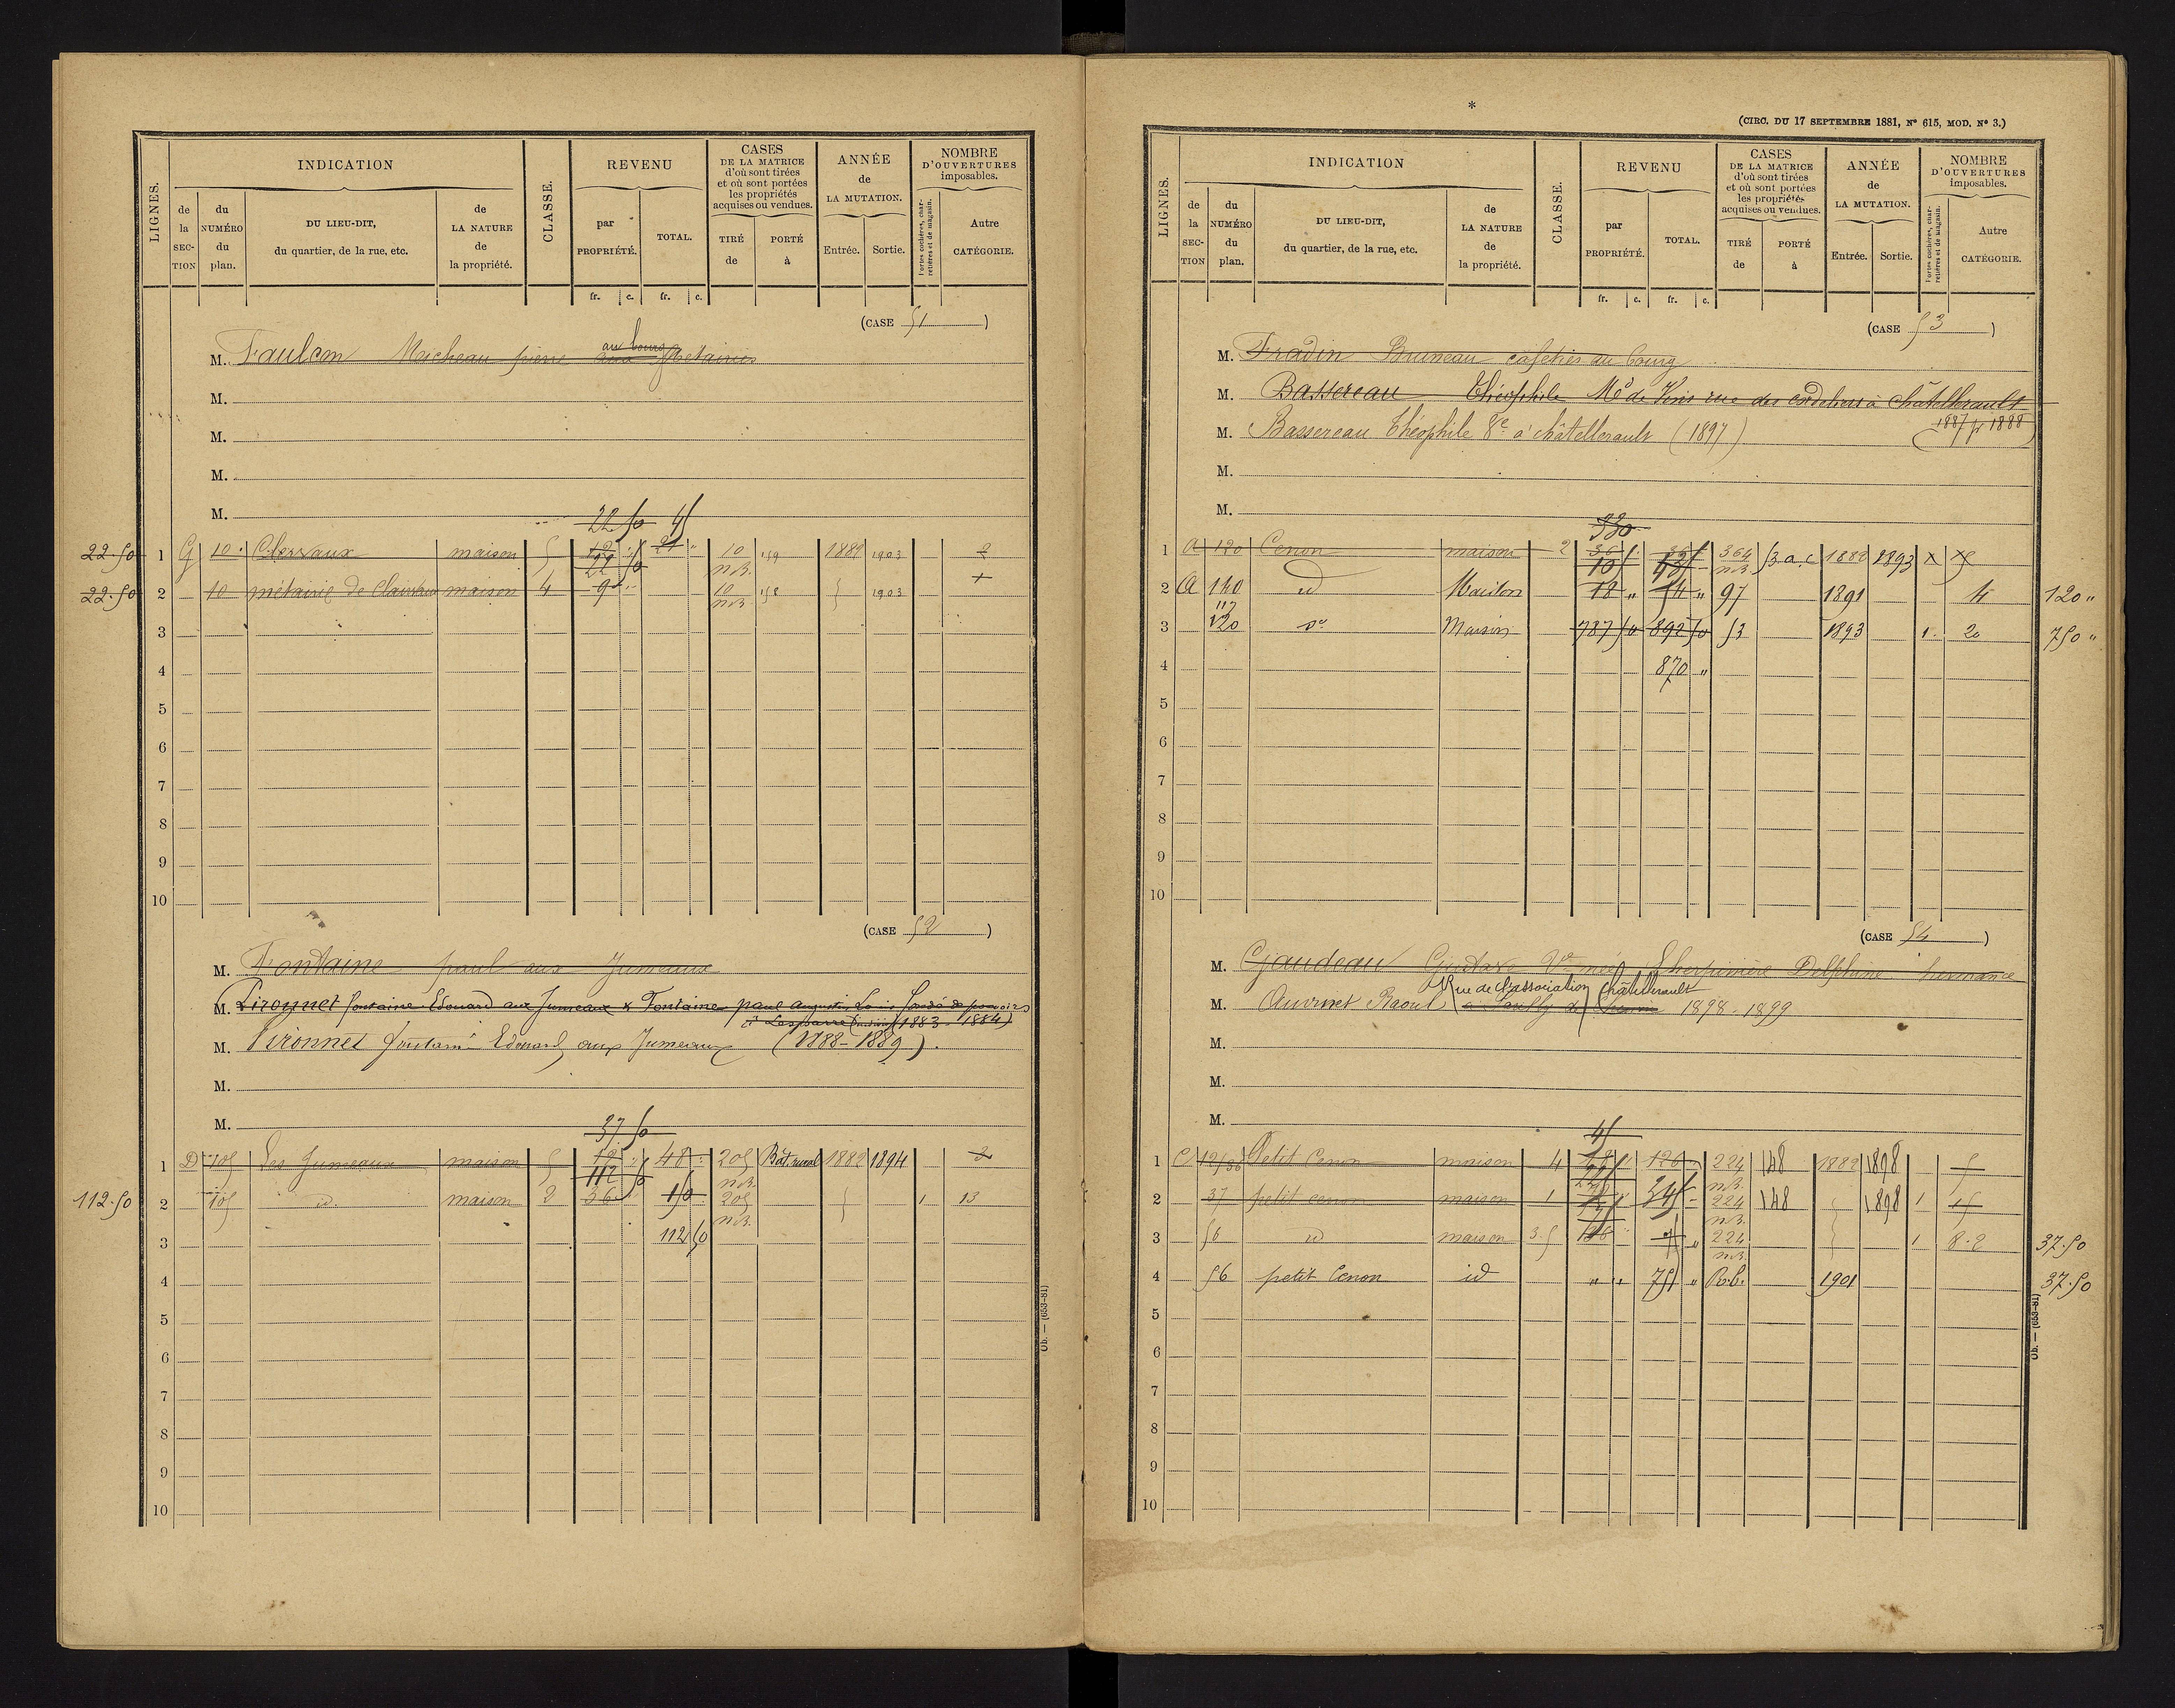 INDICATION
REVENU
CASES
DE LA MATRICE
d'où sont tirées
et où sont portées
les propriétés
acquises ou vendues.
ANNÉE
de
LA MUTATION.
NOMBRE
D'OUVERTURES
imposables.
LIGNES.
de la SECTION
du NUMÉRO du plan.
DU LIEU-DIT,
du quartier, de la rue, etc.
de LA NATURE de la propriété.
CLASSE.
par PROPRIÉTÉ.
TOTAL.
TIRÉ de
PORTÉ à
Entrée.
Sortie.
Portes cochères, charretières et de magasin.
Autre CATÉGORIE.
fr. c. fr. c.
(CASE 51)
M. Faulcon Micheau pierre aux bourg
M.
M.
M.
M.
22 50 45
22.50 1 G 10 Clervaux maison 5 12 21 10 n.B. 159 1882 1903 2
22 50
22.50 2 10 métairie de Clairvaux maison 4 9 10 n.B. 158 1903 1
3
4
5
6
7
8
9
10
(CASE 52)
M. Fontaine paul aux Jumeaux
M. Pironnet fontaine Edouard aux Jumeaux & Fontaine paul auguste Louis fondé de pouvoirs
à Lesparre (1883-1884)
M. Pironnet fontaine Edouard aux Jumeaux (1888-1889).
M.
M.
37 50
1 D 705 Les Jumeaux maison 5 12 48 205 n.B. Bât rural 1882 1894 2
112 50
112.50 2 705 id. maison 2 36 150 205 n.B. 1 13
3 112 50
4
5
6
7
8
9
10
Ob. — (653-81)
*
(CIRC. DU 17 SEPTEMBRE 1881, N° 615, MOD. N° 3.)
INDICATION
REVENU
CASES
DE LA MATRICE
d'où sont tirées
et où sont portées
les propriétés
acquises ou vendues.
ANNÉE
de
LA MUTATION.
NOMBRE
D'OUVERTURES
imposables.
LIGNES.
de la SECTION
du NUMÉRO du plan.
DU LIEU-DIT,
du quartier, de la rue, etc.
de LA NATURE de la propriété.
CLASSE.
par PROPRIÉTÉ.
TOTAL.
TIRÉ de
PORTÉ à
Entrée.
Sortie.
Portes cochères, charretières et de magasin.
Autre CATÉGORIE.
fr. c. fr. c.
(CASE 53)
M. Fradin Bruneau cafetier au bourg
M. Bassereau Théophile Md de Vins rue des cordeliers à Châtellerault
1887 1888
M. Bassereau Théophile Ve à châtellerault (1897)
M.
M.
330
1 A 120 Cenon maison 2 36 364 n.B. 53 a.c 1882 1893
2 A 140 id Maison 18 " 54 " 97 1891 4 120 "
117
3 120 do Maison 787 50 892 50 53 1893 1 20 750 "
4 870 "
5
6
7
8
9
10
(CASE 54)
M. Gaudeau Gustave Ve née Delphine hermance
Rue de l'association Châtellerault
M. Auvinet Raoul 1898-1899
M.
M.
M.
45
1 C Petit Cenon maison 4 120 224 n.B. 148 1882 1898 5
2 37 petit cenon maison 1 245 224 n.B. 148 1898 1 15
3 56 id maison 3.5 224 n.B. 1 8.2 37.50
4 56 petit Cenon id " " 75 " R.b. 1901 37.50
5
6
7
8
9
10
Ob. — (653-81)